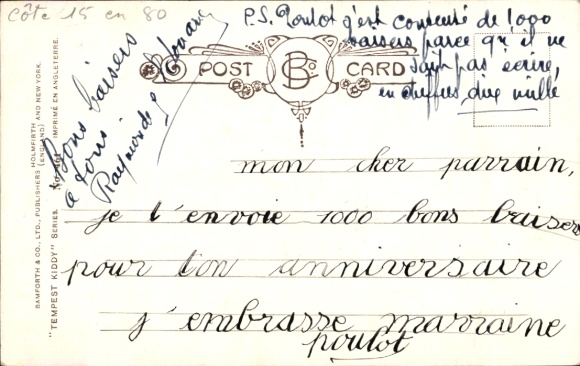 Côte 15 en 80
P.S. Poulot s'est contenté de 1000
baisers parce qu'il ne
sait pas écrire
en chiffres dix mille
Bons baisers
à tous
Raymonde
POST CARD
B & Co.
BAMFORTH & CO., LTD., PUBLISHERS HOLMFIRTH (ENGLAND) AND NEW YORK.
"TEMPEST KIDDY" SERIES. No. IMPRIMÉ EN ANGLETERRE.
mon cher parrain,
je t'envoie 1000 bons baisers
pour ton anniversaire
j'embrasse marraine
poulot